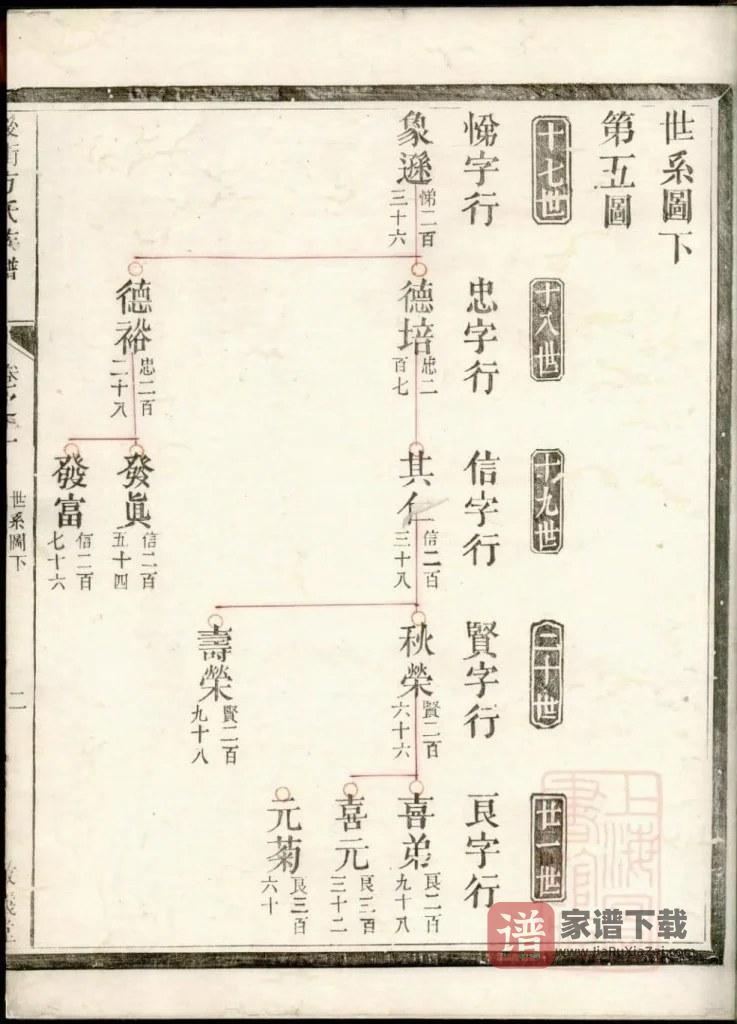 世系圖下
第五圖
十七世
悌字行
象遜
悌二百
三十六
十八世
忠字行
德培
忠二
百七
德裕
忠二百
二十八
十九世
信字行
其仁
信二百
三十八
發眞
信二百
五十四
發富
信二百
七十六
二十世
賢字行
秋榮
賢二百
六十六
壽榮
賢二百
九十八
廿一世
艮字行
喜弟
艮二百
九十八
喜元
艮三百
三十二
元菊
艮三百
六十
方氏族譜
世系圖下
二
上海
谱 家谱下载
www.JiaPuXiaZai.com